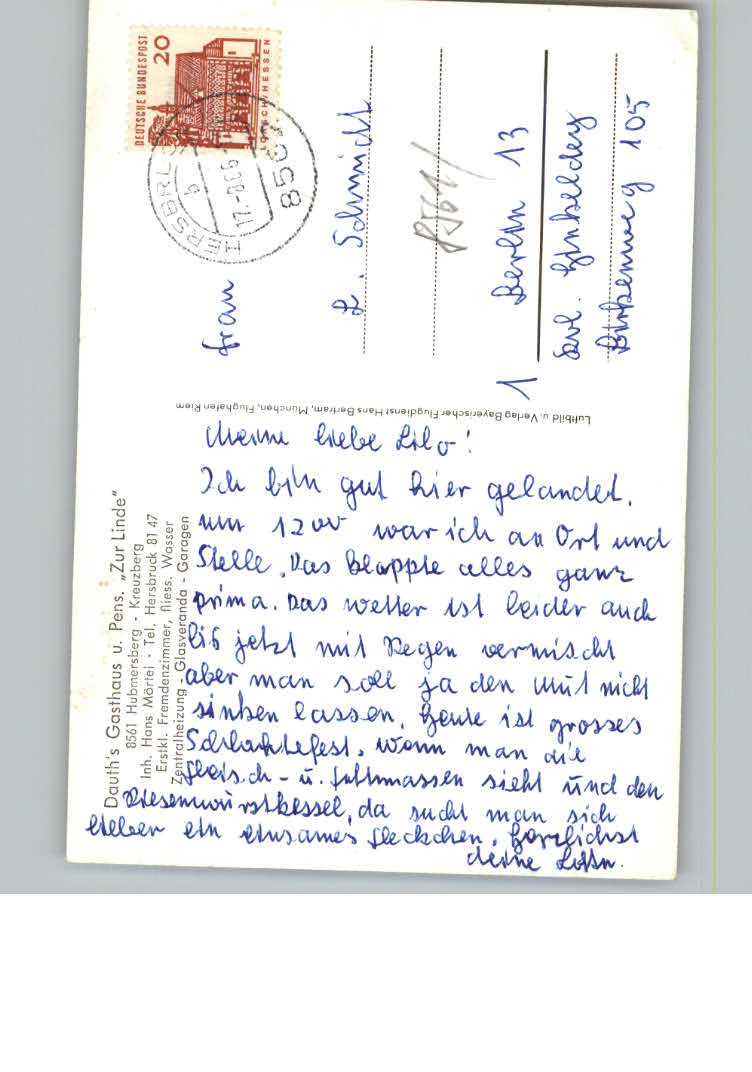 Dauth's Gasthaus u. Pens. „Zur Linde"
8561 Hubmersberg - Kreuzberg
Inh. Hans Mörtel · Tel. Hersbruck 81 47
Erstkl. Fremdenzimmer, fliess. Wasser
Zentralheizung - Glasveranda - Garagen
Meine liebe Lilo!
Ich bin gut hier gelandet,
um 12 00 war ich an Ort und
Stelle. Das klappte alles ganz
prima. Das Wetter ist leider auch
bis jetzt mit Regen vermischt
aber man soll ja den Mut nicht
sinken lassen. Heute ist grosses
Schlachtefest. Wenn man die
Fleisch- u. Fettmassen sieht und den
Riesenwurstkessel, da sucht man sich
lieber ein einsames Fleckchen. Herzlichst
deine
Luftbild u. Verlag Bayerischer Flugdienst Hans Bertram, München, Flughafen Riem
DEUTSCHE BUNDESPOST
20
LORSCH/HESSEN
HERSBRUCK
b
17.-8.66
8562
Frau
L. Schmidt
8561/
1 Berlin 13
Birkenweg 105